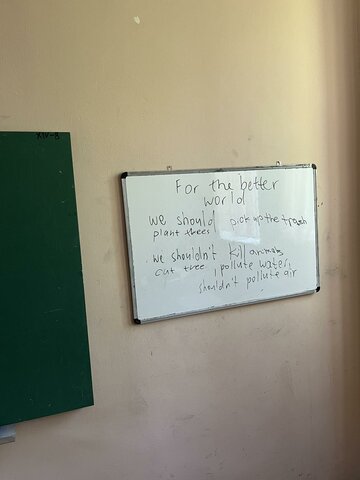 XIV-8
For the better
world
we should pick up the trash
plant trees
we shouldn't kill animals
cut tree, pollute water,
shouldn't pollute air